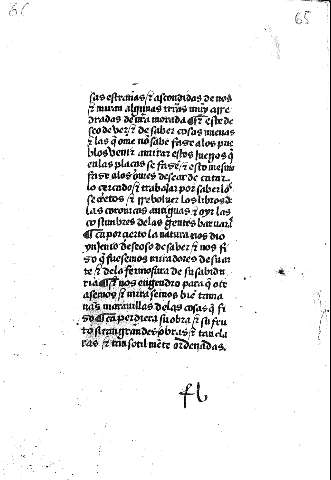 65
sas estrañas / ⁊ ascondidas de nos
⁊ muran algunas trras muy arre
dradas de nr̃a morada ¶ ⁊ este de
seo de veer / ⁊ de saber cosas nueuas
⁊ las q̃ ome no sabe faze a los pue
blos venir a mirar estos juegos q̃
en las plaças se fazẽ / ⁊ esto mesmo
faze a los omes desear de catar
lo cercado / ⁊ trabajar por saber los
secretos / ⁊ rreboluer los libros de
las coronicas antiguas / ⁊ oyr las
costumbres de las gentes barbar̃
¶ ca por cierto la natura nos dio
yngenio deseoso de saber / ⁊ nos fi
zo q̃ fuesemos miradores de su ar
te / ⁊ de la fermosura de su sabidu
ria ¶ ⁊ nos engendro para q̃ ote
asemos / ⁊ mirasemos biẽ tama
nas marauillas de las cosas q̃ fi
zo ¶ ca perdiera su obra / ⁊ su fru
to si tan grandes obras / ⁊ tan cla
ras / ⁊ tan sotil mẽte ordenadas.